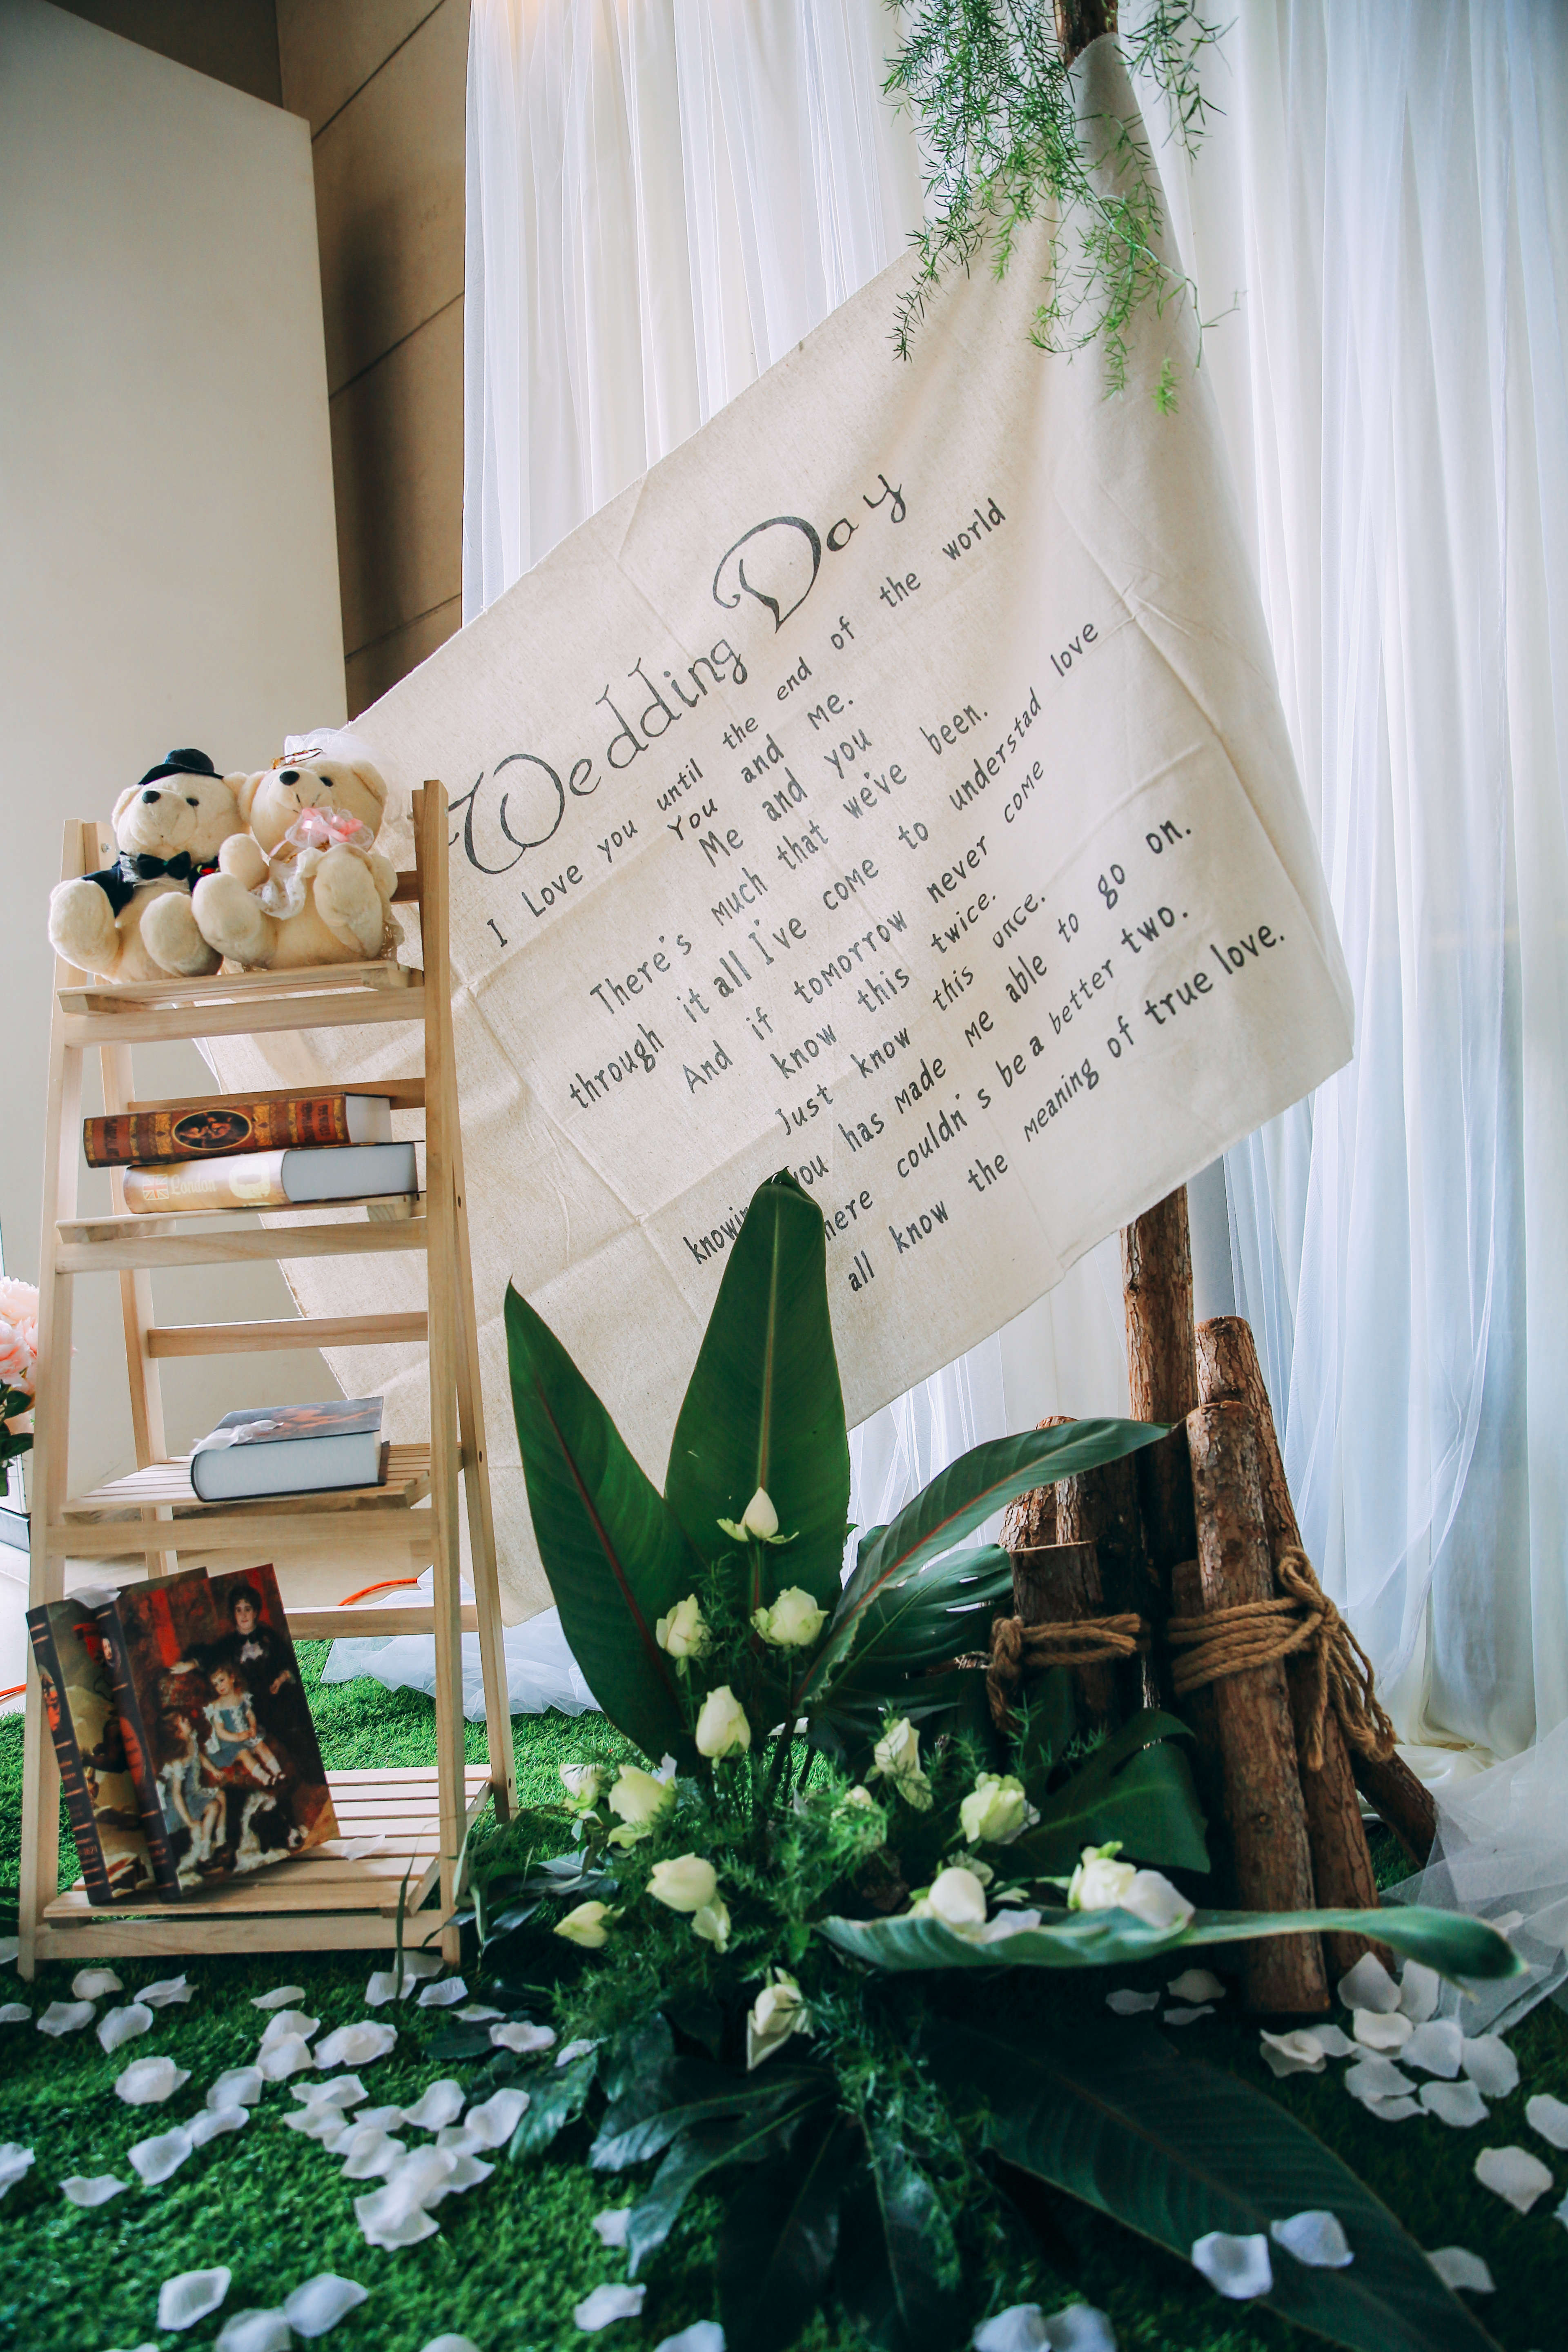 Wedding Day
I Love you until the end of the world
You and me.
Me and you
There's much that we've been.
through it all I've come to understad love
And if tomorrow never come
know this twice.
Just know this once.
you has made me able to go on.
couldn's be a better two.
all know the meaning of true love.
London